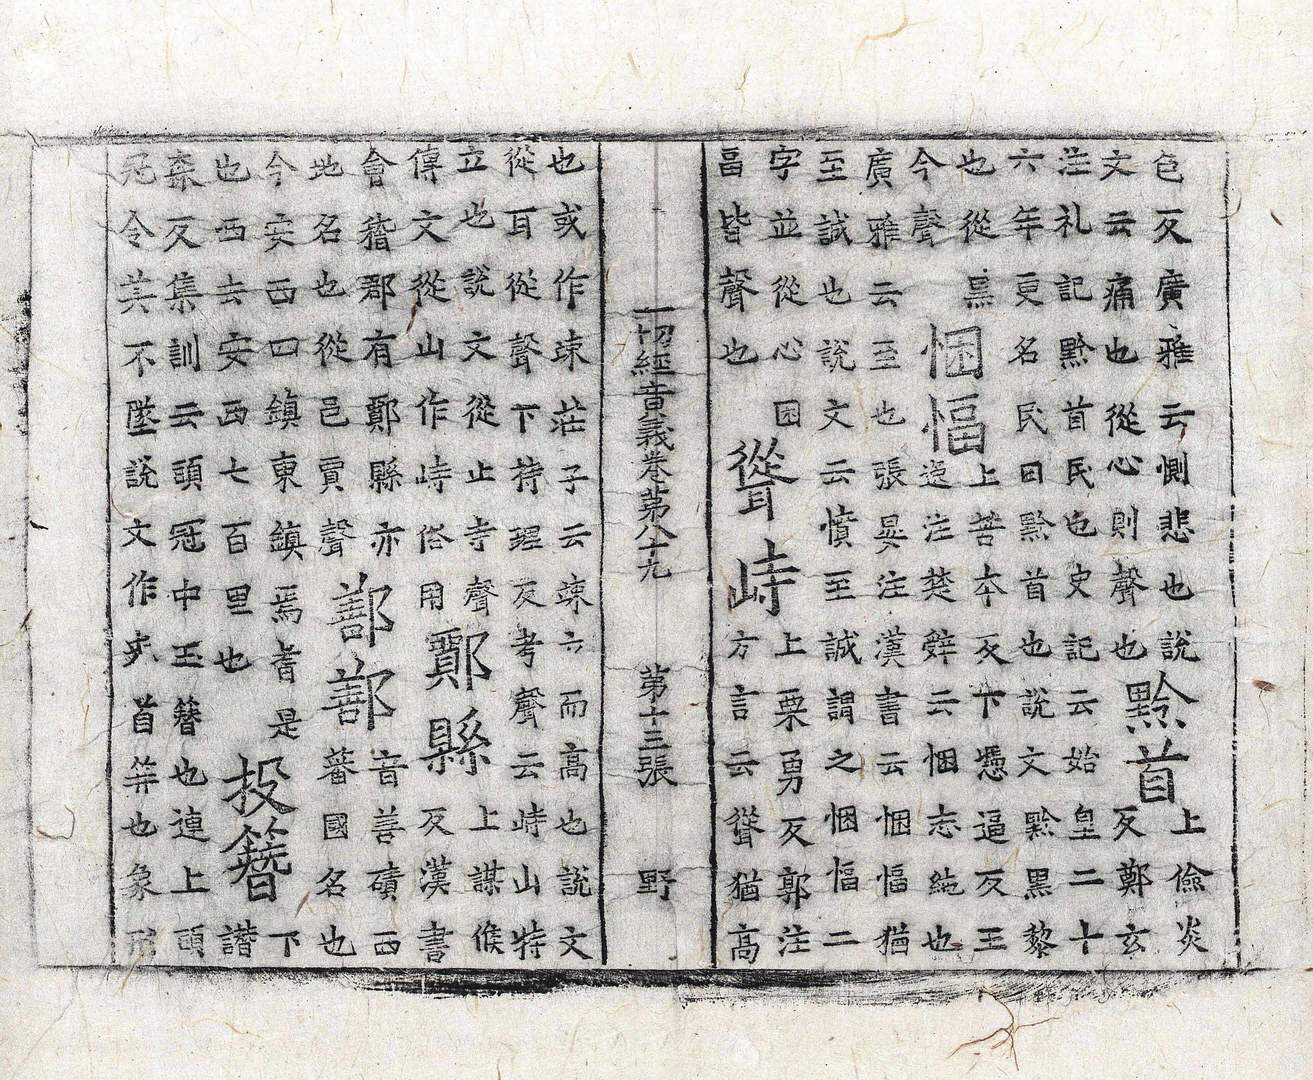 色反廣雅云惻悲也說
文云痛也從心則聲也
黔首
上儉炎
反鄭玄
注礼記黔首民也史記云始皇二十
六年更名民曰黔首也說文黔黑黎
也從黒
今聲
悃愊
上苦本反下憑逼反王
逸注楚辤云悃志純也
廣雅云至也張晏注漢書云悃愊猶
至誠也說文云憤至誠謂之悃愊二
字並從心困
畐皆聲也
聳峙
上粟勇反郭注
方言云聳猶高
一切經音義卷第八十九 第十三張 野
也或作竦莊子云竦六而高也說文
從耳從聲下持理反考聲云峙山特
立也說文從止寺聲
傳文從山作峙俗用
鄮縣
上謀候
反漢書
會稽郡有鄮縣亦
地名也從邑貿聲
鄯鄯
音善磧西
蕃國名也
今安西四鎮東鎮焉耆是
也西去安西七百里也
投簪
下
譖
森反集訓云頭冠中玉簪也連上頭
冠令美不墜說文作兂首笄也象形